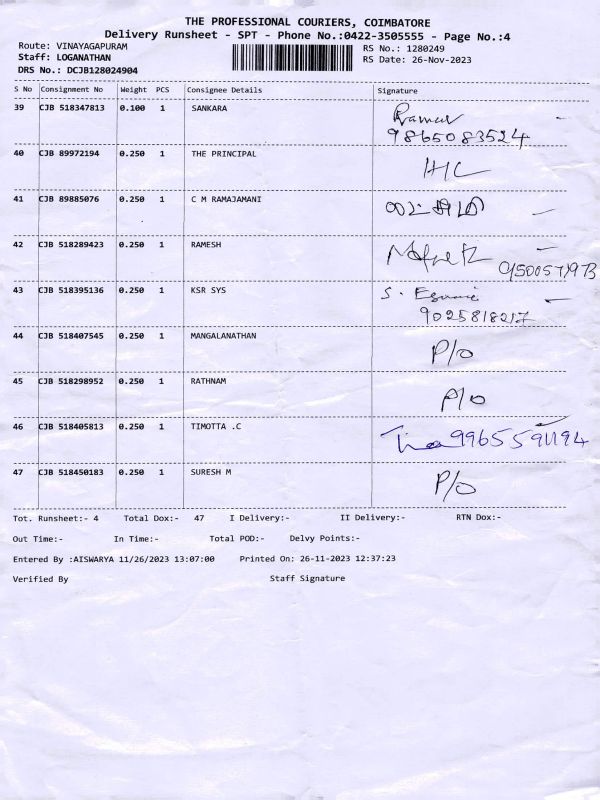 THE PROFESSIONAL COURIERS, COIMBATORE
Delivery Runsheet - SPT - Phone No.:0422-3505555 - Page No.:4
Route: VINAYAGAPURAM
RS No.: 1280249
Staff: LOGANATHAN
RS Date: 26-Nov-2023
DRS No.: DCJB128024904
S No Consignment No Weight PCS Consignee Details Signature
39 CJB 518347813 0.100 1 SANKARA
9865083524
40 CJB 89972194 0.250 1 THE PRINCIPAL
41 CJB 89885076 0.250 1 C M RAMAJAMANI
42 CJB 518289423 0.250 1 RAMESH
43 CJB 518395136 0.250 1 KSR SYS S.
9025818217
44 CJB 518407545 0.250 1 MANGALANATHAN P/O
45 CJB 518298952 0.250 1 RATHNAM P/O
46 CJB 518405813 0.250 1 TIMOTTA .C 9965591194
47 CJB 518450183 0.250 1 SURESH M P/O
Tot. Runsheet:- 4 Total Dox:- 47 I Delivery:- II Delivery:- RTN Dox:-
Out Time:- In Time:- Total POD:- Delvy Points:-
Entered By :AISWARYA 11/26/2023 13:07:00 Printed On: 26-11-2023 12:37:23
Verified By Staff Signature